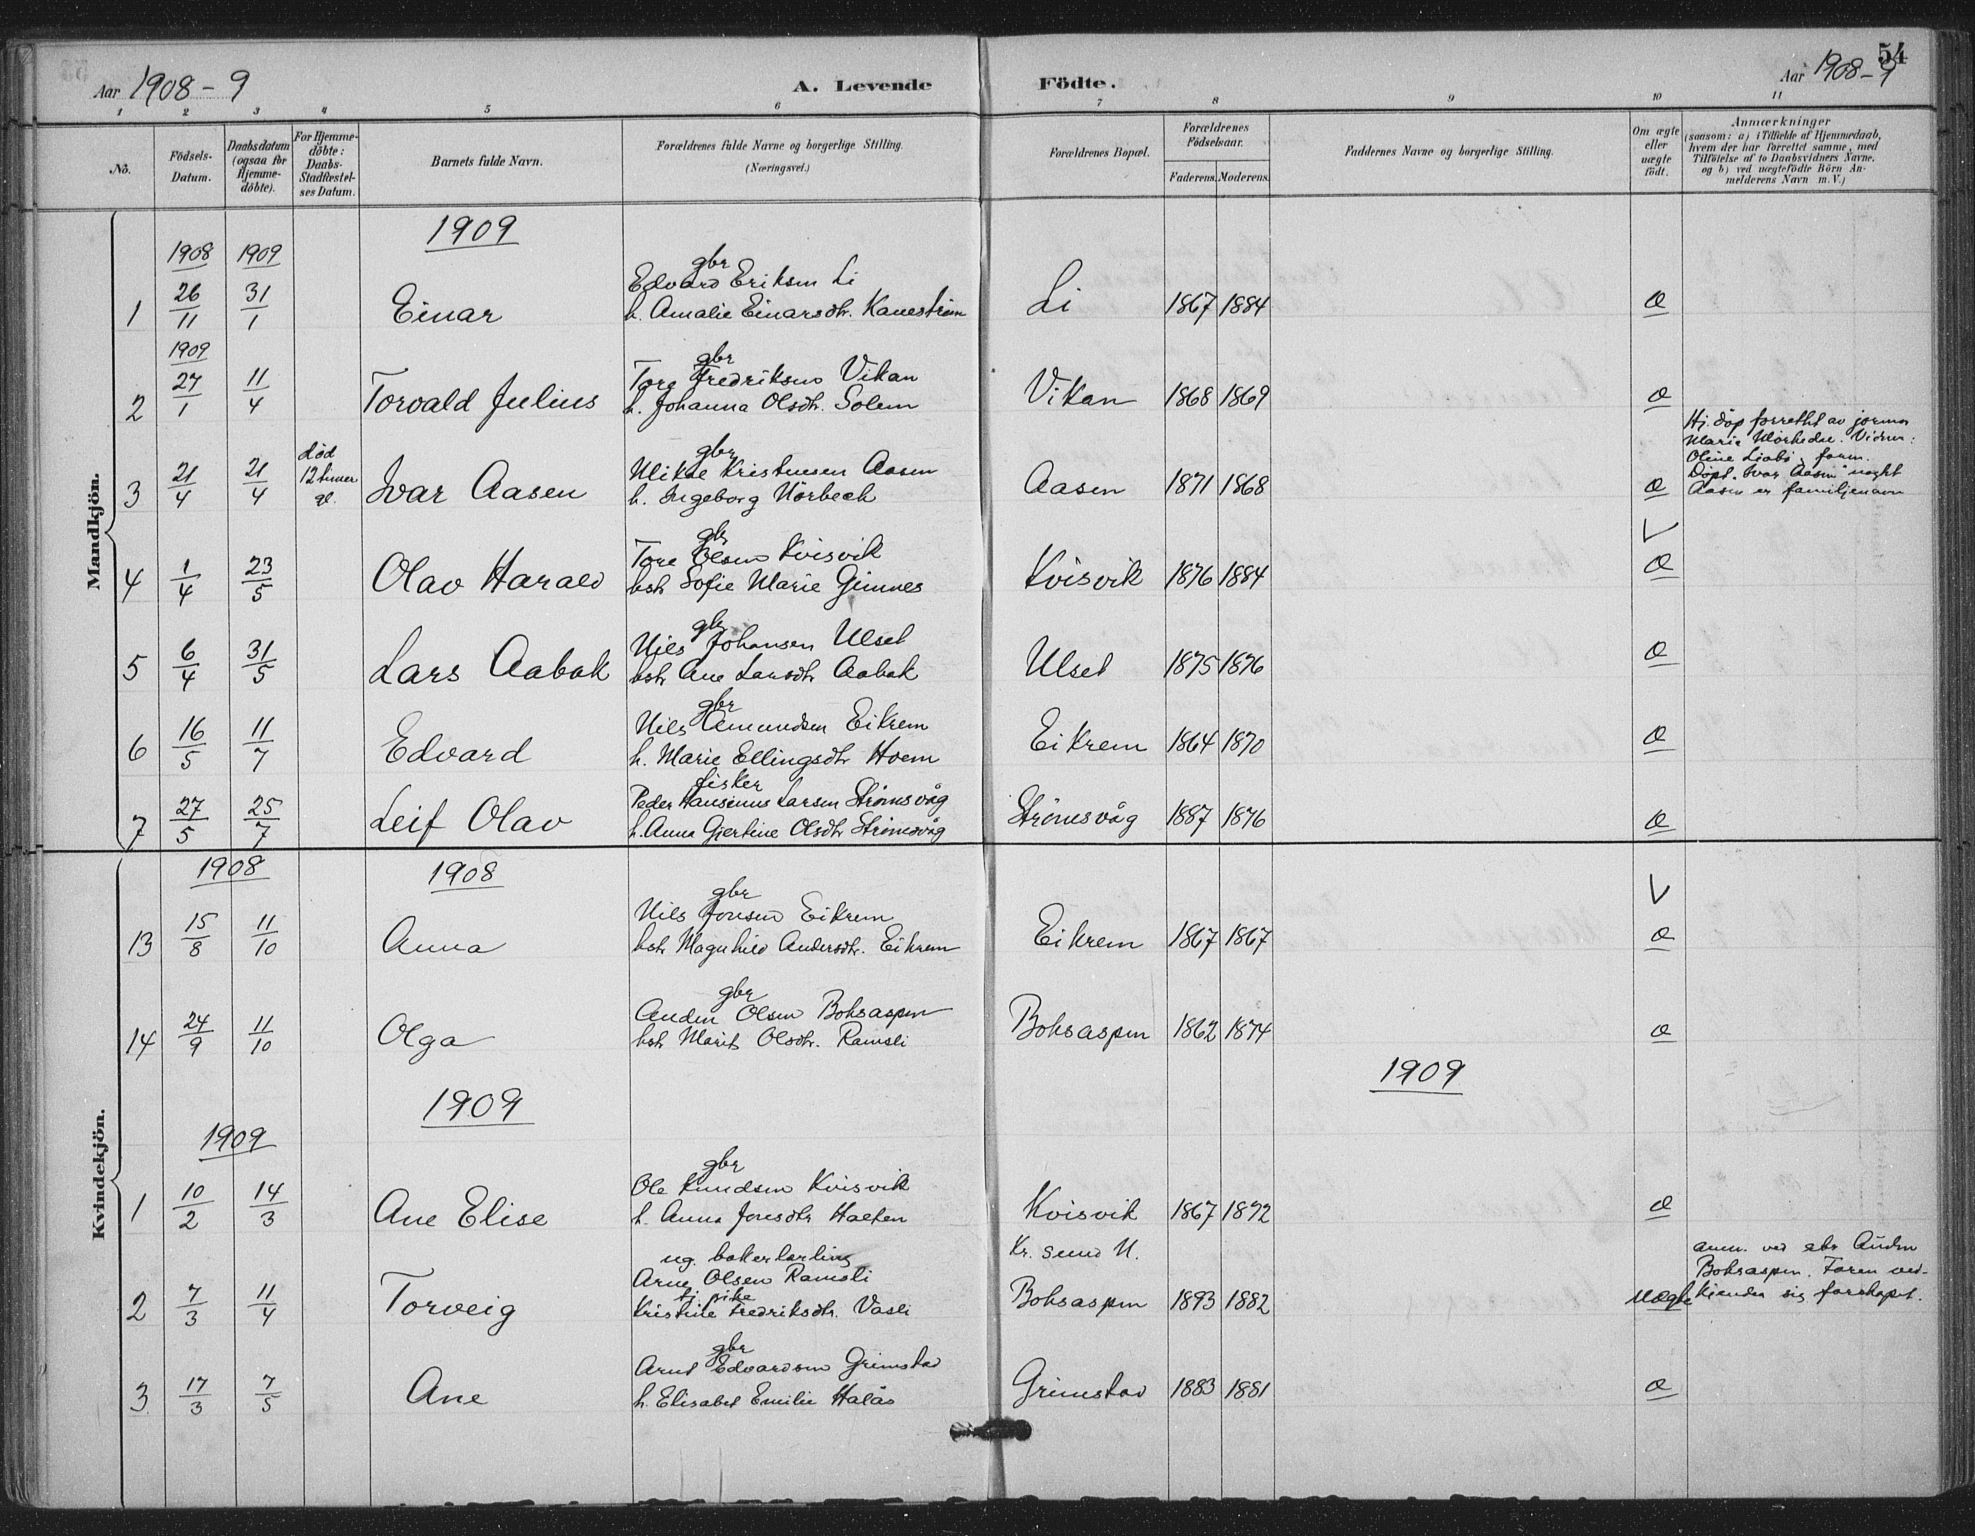 54
Aar 1908-9 A. Levende Födte. Aar 1908-9
1 2 3 4 5 6 7 8 9 10 11
No. Födsels-Datum. Daabsdatum (ogsaa for Hjemme-döbte). For Hjemme-döbte: Daabs-Stadfæstel-ses Datum. Barnets fulde Navn. Forældrenes fulde Navne og borgerlige Stilling. (Næringsvei.) Forældrenes Bopæl. Forældrenes Födselsaar. Faderens. Moderens. Faddernes Navne og borgerlige Stilling. Om ægte eller uægte födt. Anmærkninger (saasom: a) i Tilfælde af Hjemmedaab, hvem der har forrettet samme, med Tilföielse af to Daabsvidners Navne, og b) ved uægtefödte Börn An-melderens Navn m. V.)
Mandkjön.
1909
1908 1909
gbr
Edvard Eriksen Li
1 26/11 31/1 Einar h. Amalie Einarsdtr. Kanestrøm Li 1867 1884 æ
1909
gbr
Tore Fredriksen Vikan
2 27/1 11/4 Torvald Julius h. Johanna Olsdtr. Solem Vikan 1868 1869 æ
gbr
Mikal Kristensen Aasen
3 21/4 21/4 død 12 timer gl. Ivar Aasen h. Ingeborg Nörbech Aasen 1871 1868 æ
Hj. döp forrettet av jormor
Marie
Oline
Döpt "Ivar Aasen"
Aasen er familjenavn
gbr
Tore Olsen Kvisvik
4 1/4 23/5 Olav Harald hstr Sofie Marie Gimnes Kvisvik 1876 1884 æ
gbr
Nils Johansen Ulset
5 6/4 31/5 Lars Aabak hstr Ane Larsdtr Aabak Ulset 1875 1876 æ
gbr
Nils Amundsen Eikrem
6 16/5 11/7 Edvard h. Marie Ellingsdtr Hoem Eikrem 1864 1870 æ
fisker
Peder Hansinus Larsen Strømsvåg
7 27/5 25/7 Leif Olav h. Anna Gjertine Olsdtr Strømsvåg Strømsvåg 1887 1876 æ
Kvindekjön.
1908 1908
gbr
Nils Jonsen Eikrem
13 15/8 11/10 Anna hstr Magnhild Andersdtr. Eikrem Eikrem 1867 1867 æ
gbr
Auden Olsen Bolsaspen
14 24/9 11/10 Olga hstr Marit Olsdtr. Ramsli Bolsaspen 1862 1874 æ
1909
1909
1909
gbr
Ole Knudsen Kvisvik
1 10/2 14/3 Ane Elise h. Anna Jonsdtr Halten Kvisvik 1867 1872 æ
ug. bakerlærling Kr.sund N.
Arne Olsen Ramsli
tj. pike
2 7/3 11/4 Torveig Kristine Fredriksdtr. Vasli Bolsaspen 1893 1882 uægte
anm. ved gbr Auden
Bolsaspen. Faren ved-
kjender sig farskapet.
gbr
Arnt Edvardsen Grimstad
3 17/3 7/5 Ane h. Elisabet Emilie Halås Grimstad 1883 1881 æ